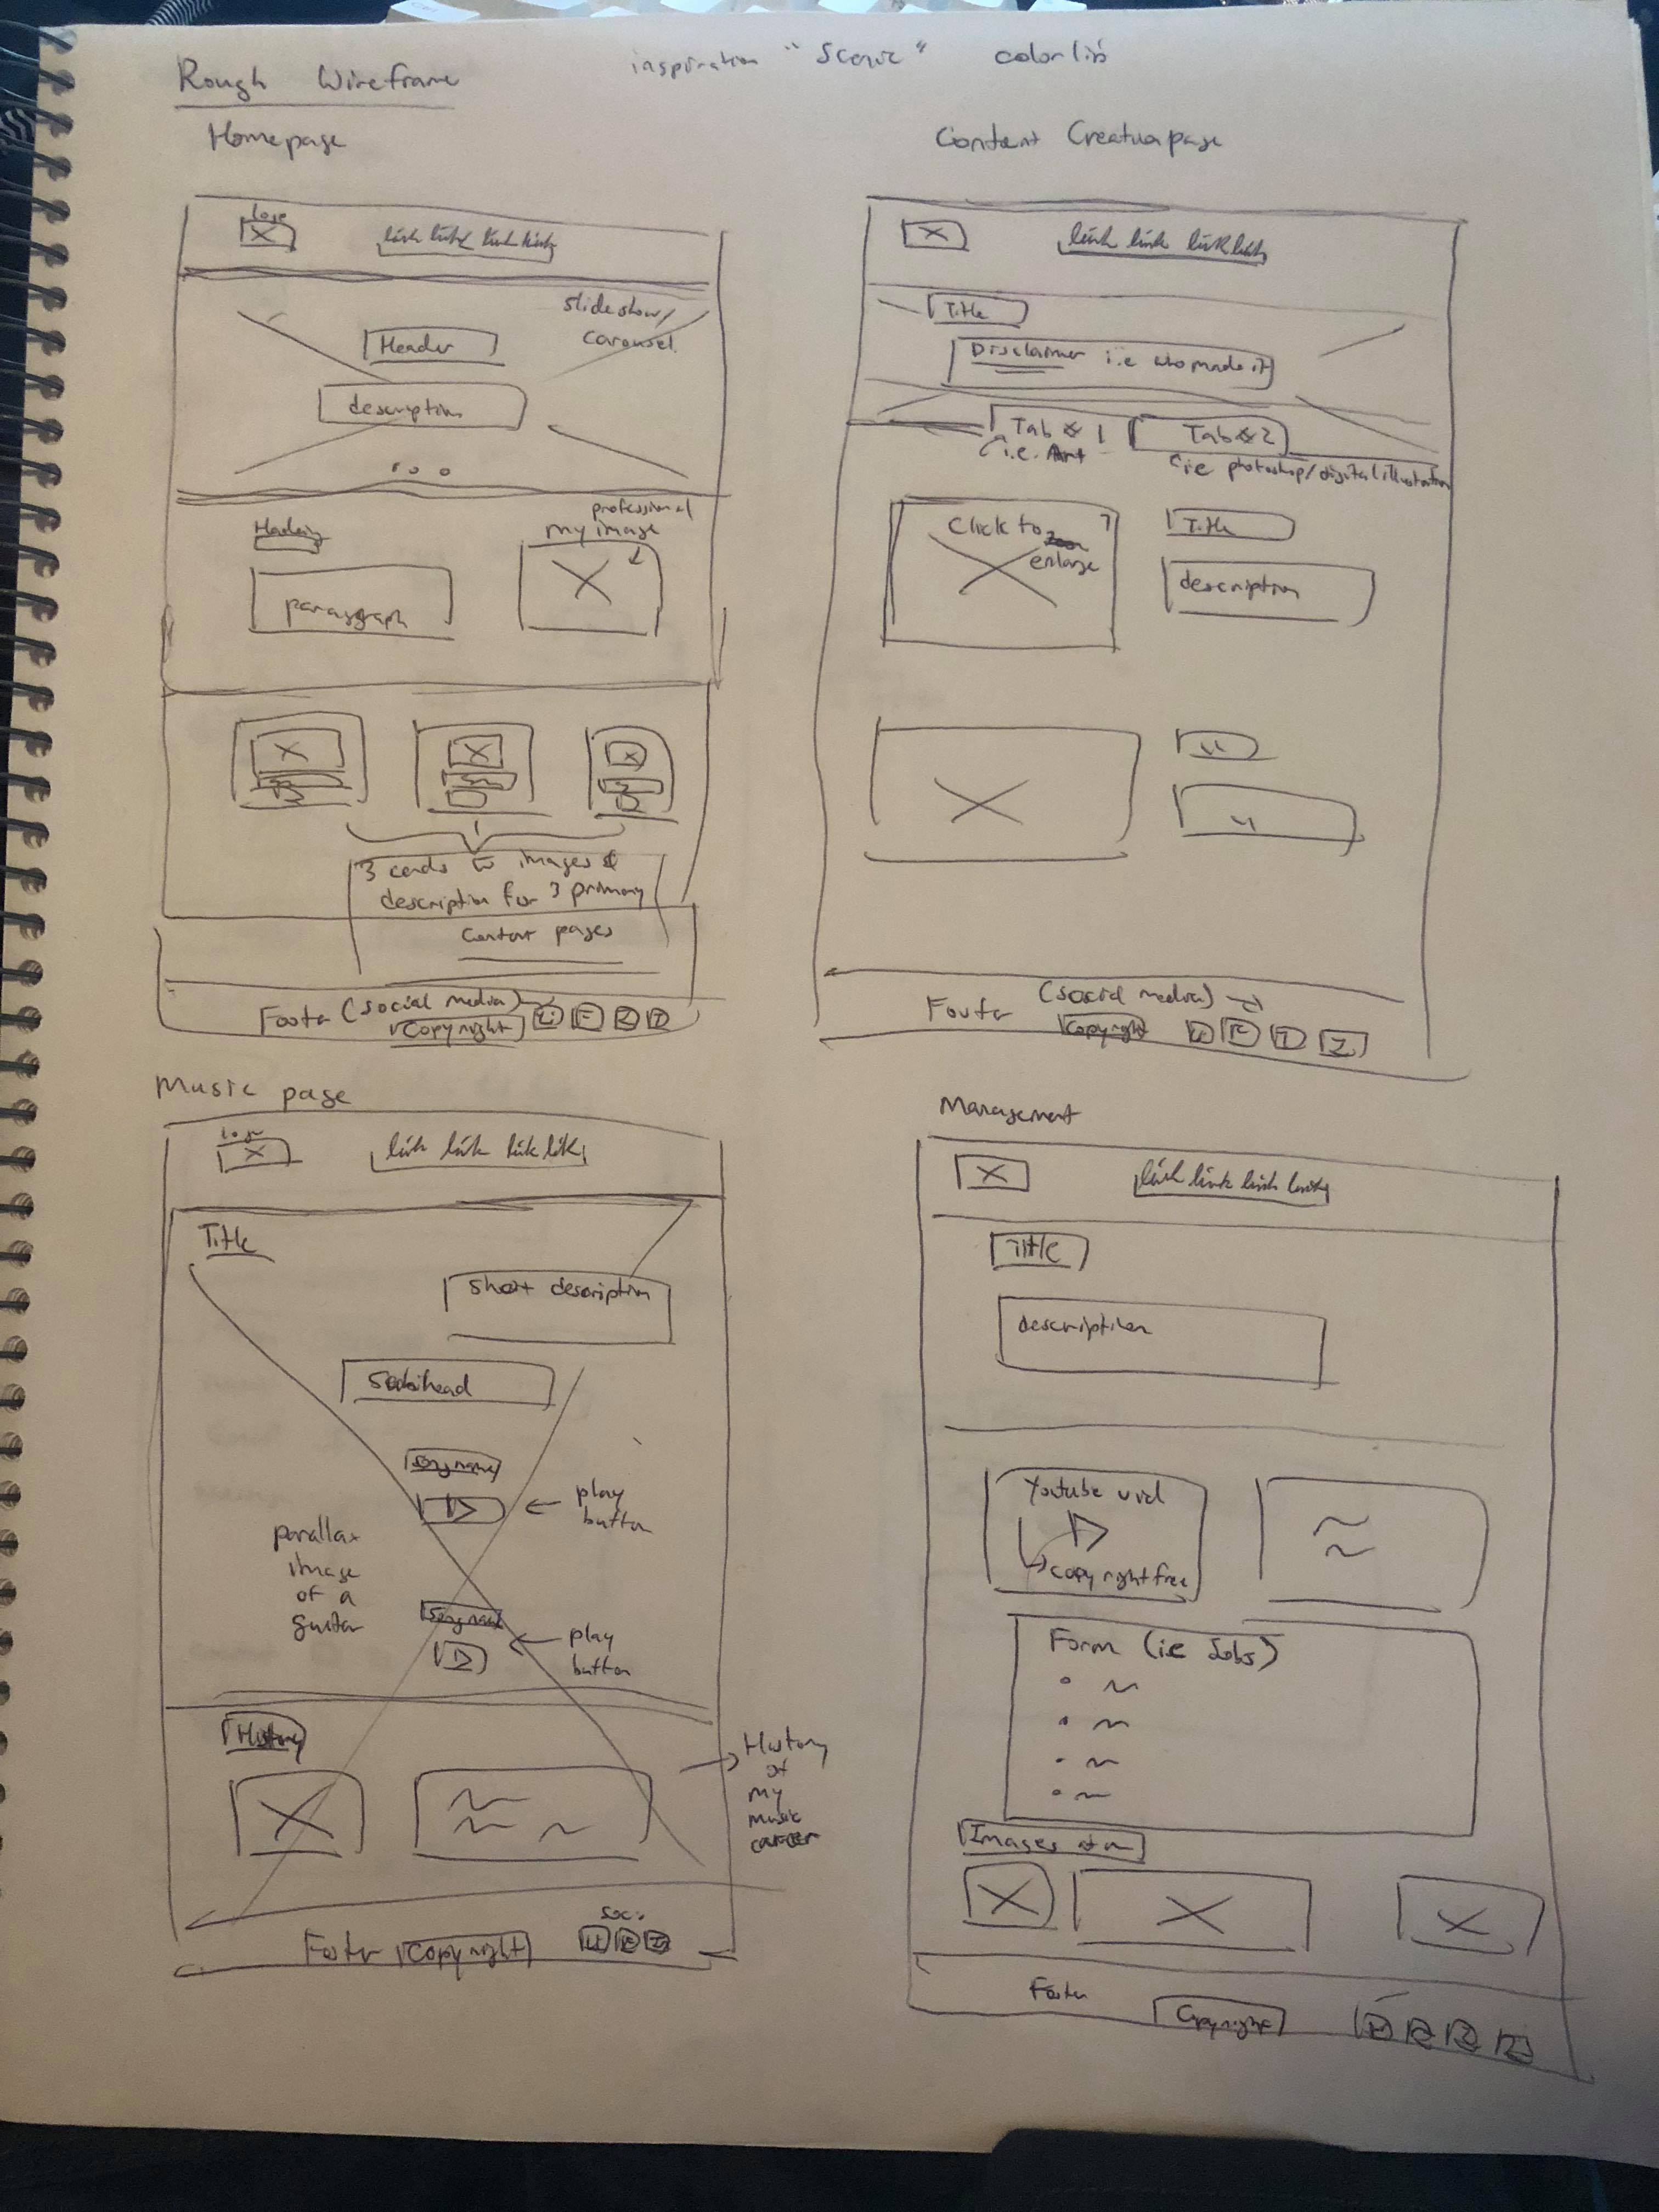 Rough Wireframe
inspiration "Scenic" colorlib
Homepage
logo
link link link link
slideshow/
carousel
Header
description
Heading
professional
my image
paragraph
3 cards w images &
description for 3 primary
content pages
Footer (social media)
Copyright
Content Creation page
link link link link
Title
Disclaimer i.e who made it
Tab 1
Tab 2
i.e. Art
i.e photoshop/digital illustration
Click to
enlarge
Title
description
Footer
(social media)
Copyright
Music page
logo
link link link link
Title
Short description
song name
play
button
parallax
image
of a
guitar
song name
play
button
History
History
of
my
music
career
Footer Copyright
Management
link link link link
Title
description
Youtube vid
copyright free
Form (i.e Jobs)
Images
Footer
Copyright